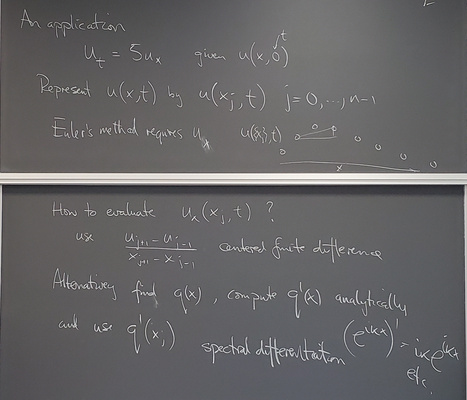 An application
u_t = 5u_x given u(x,0) t
Represent u(x,t) by u(x_j,t) j=0,...,n-1
Euler's method requires u_x u(x_j,t)
x
How to evaluate u_x(x_j,t) ?
use (u_{j+1} - u_{j-1})/(x_{j+1} - x_{j-1}) centered finite difference
Alternatively find q(x), compute q'(x) analytically,
and use q'(x_j) spectral differentiation (e^{ikx})' = ike^{ikx}
etc.